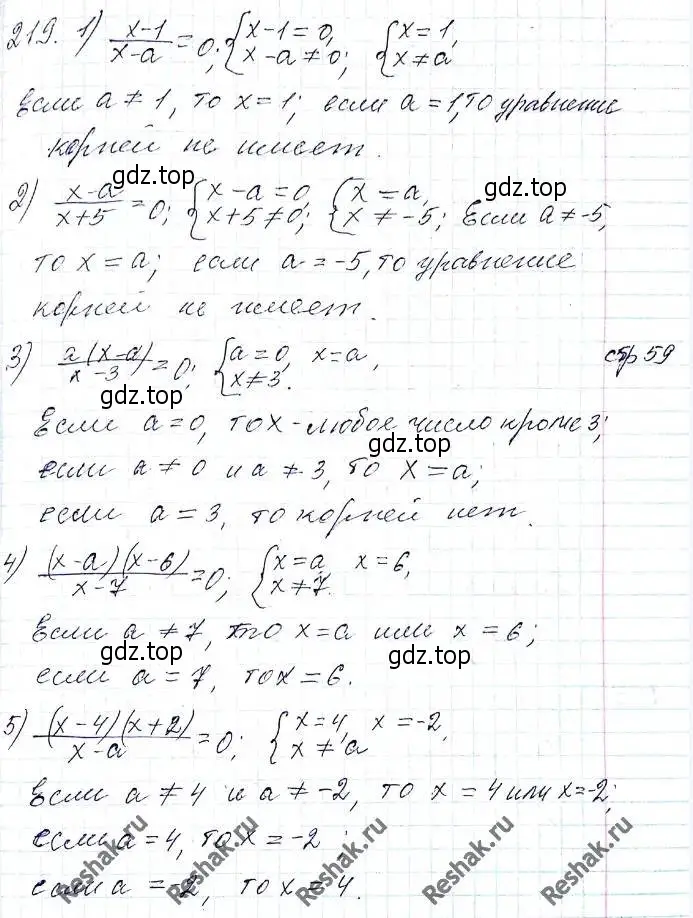 219. 1) (x-1)/(x-a) = 0; {x-1=0, x-a≠0; {x=1, x≠a
Если a ≠ 1, то x = 1; если a = 1, то уравнение
корней не имеет.
2) (x-a)/(x+5) = 0; {x-a=0, x+5≠0; {x=a, x≠-5; Если a ≠ -5,
gdz.top gdz.top
то x = a; если a = -5, то уравнение
корней не имеет.
3) a(x-a)/(x-3) = 0; {a=0, x=a, x≠3. стр 59
Если a = 0, то x - любое число кроме 3;
gdz.top
если a ≠ 0 и a ≠ 3, то x = a;
если a = 3, то корней нет.
4) (x-a)(x-6)/(x-7) = 0; {x=a, x=6, x≠7.
Если a ≠ 7, то x = a или x = 6;
gdz.top gdz.top
если a = 7, то x = 6.
5) (x-4)(x+2)/(x-a) = 0; {x=4, x=-2, x≠a
Если a ≠ 4 и a ≠ -2, то x = 4 или x = -2;
если a = 4, то x = -2;
если a = -2, то x = 4.
Reshak.ru Reshak.ru Reshak.ru Reshak.ru